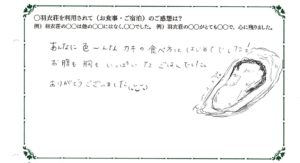 ○羽衣荘を利用されて（お食事・ご宿泊）のご感想は?
例）羽衣荘の○○は他の○○にはなく、○○でした。 例）羽衣荘の○○がとても○○で、心に残りました。
あんなに色〜んな カキの食べ方って はじめてでした!
お腹も胸もいっぱいな ごはんでした。
ありがとうございました